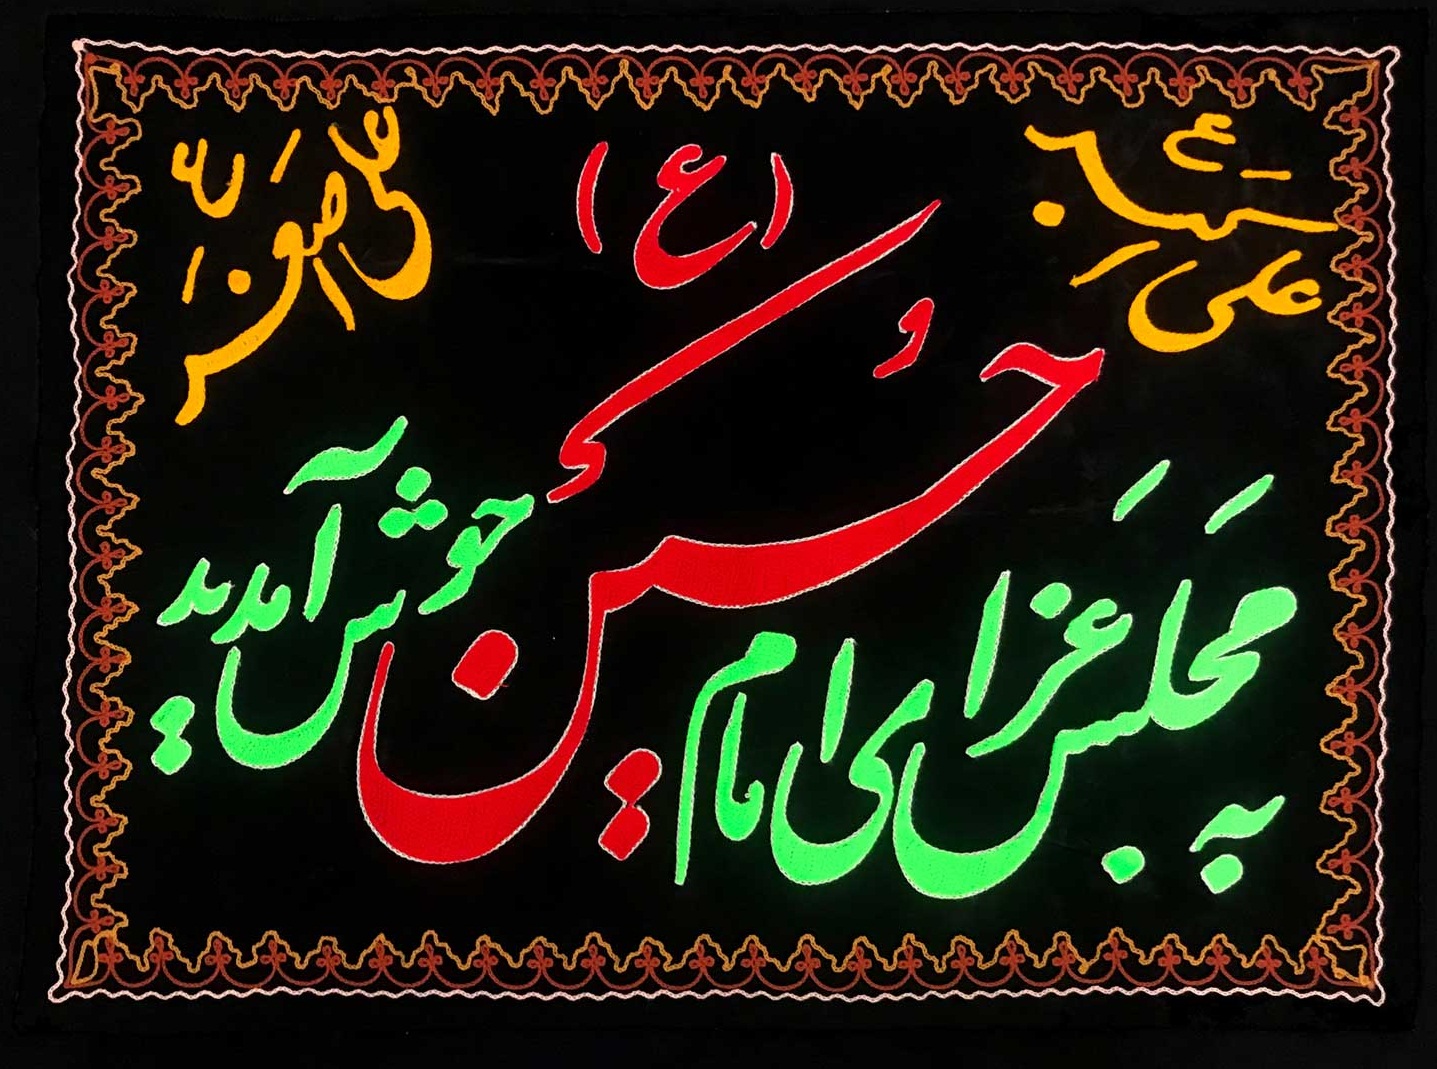 علی اکبر ع
علی اصغر ع
به مجلس عزای امام
حسین (ع)
خوش آمدید